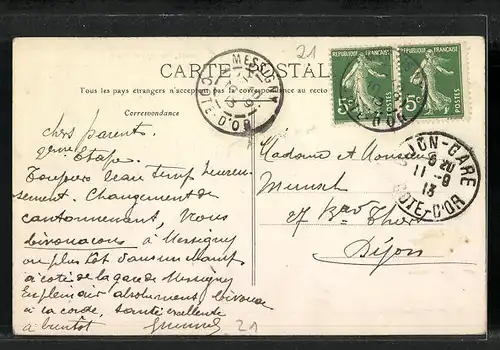 21
CARTE POSTALE
Tous les pays étrangers n'acceptent pas la correspondance au recto
Correspondance
MESSIGNY
CÔTE-D'OR
RÉPUBLIQUE FRANÇAISE
5c
POSTES
RÉPUBLIQUE FRANÇAISE
5c
POSTES
CÔTE-D'OR
DIJON-GARE
11-9
13
CÔTE-D'OR
chers parents.
2ème Etape
Toujours beau temps heureu-
sement. Changement de
cantonnement, Nous
bivouacons à Messigny
ou plus tôt dans un champ
à coté de la gare de Messigny
En plein air absolument, bivouac
à la corde, santé excellente
à bientôt
Madame et Monsieur
Munsch
27 Thiers
Dijon
21